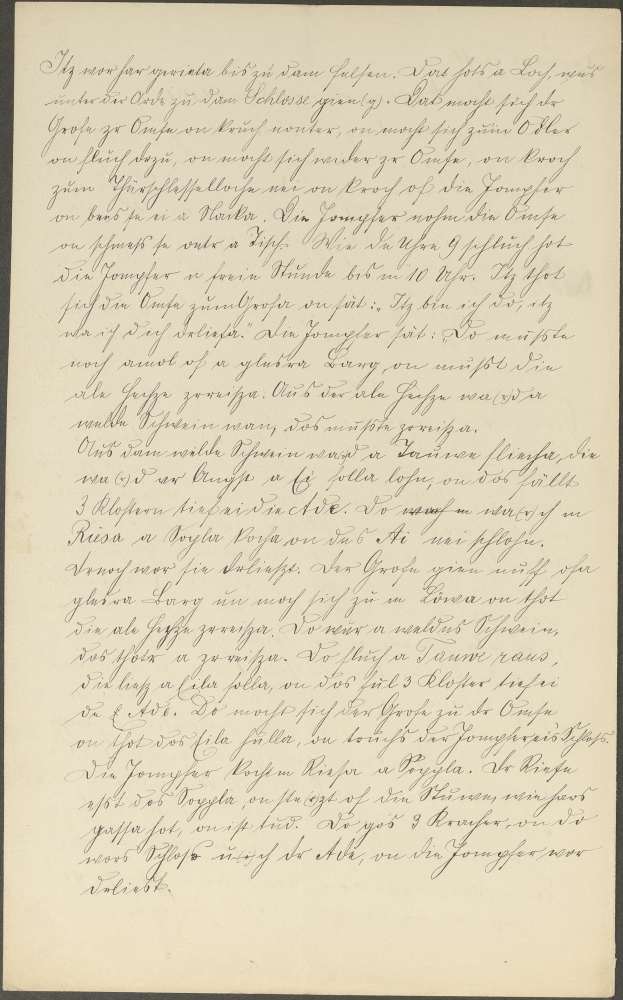 Itz wor har gerieta bis zu dam Felsen. Dat hots a Loch, wus
unter der Orde zu dam Schlosse gien(g). Dat macht sich dr
Grofe zr Omse on kruch nonter, on macht sich zum Odler
on fluch drzu, on macht sich wider zr Omse, on kroch
zum Thürschlesselloche nei on kroch of die Jompfer
on beus se ei a Nacka. Die Jompfer nohm die Omse
on schmeß se ontr a Tisch. Wie de Uhre 9 schluch hot
die Jompfer n freie Stunde bis in 10 Uhr. Itz thot
sich die Omse zum Grofa on sät: „Itz bin ich do, itz
wa ich dich drliesa." Die Jompfer sät: „Do mußte
noch amol of a glesra Barg on mußt die
ale Hechse zrreißa. Aus der ale Hechse wa(r)d a
welde Schwein wan, dos mußte zrreißa.
Aus dam wilde Schwein wa(r)d a Tauwe fliecha, die
wa(r)d vr Angst a Ei folla lohn, on dos fällt
3 Klostern tief ei die Ade. Do wa(r)ch m
Riesa a Sopla kocha on dus Ai nei schlohn.
Drnoch wor sie drliest. Der Grofe gien nuff ofa
glesra Barg un mach sich zu m Löwa on thot
die ale Hechse zrreißa. Do wur a weldes Schwein,
dos thotr a zrreißa. Do fluch a Tauwe raus,
die ließ a Eila folla, on dos ful 3 Kloster tief ei
de Ade. Do macht sich der Grofe zu dr Omse
on thot dos Eila hulla, on truchs der Jompfer eis Schloß.
Die Jompfer kocht m Riesa a Soppla. Dr Riese
eßt dos Soppla on ste(r)zt of die Stuwe, wie hars
gassa hot, on ist tud. Do gos 3 Kracher, on do
wors Schloß ü(r)ch dr Ade, on die Jompfer wor
drliest.